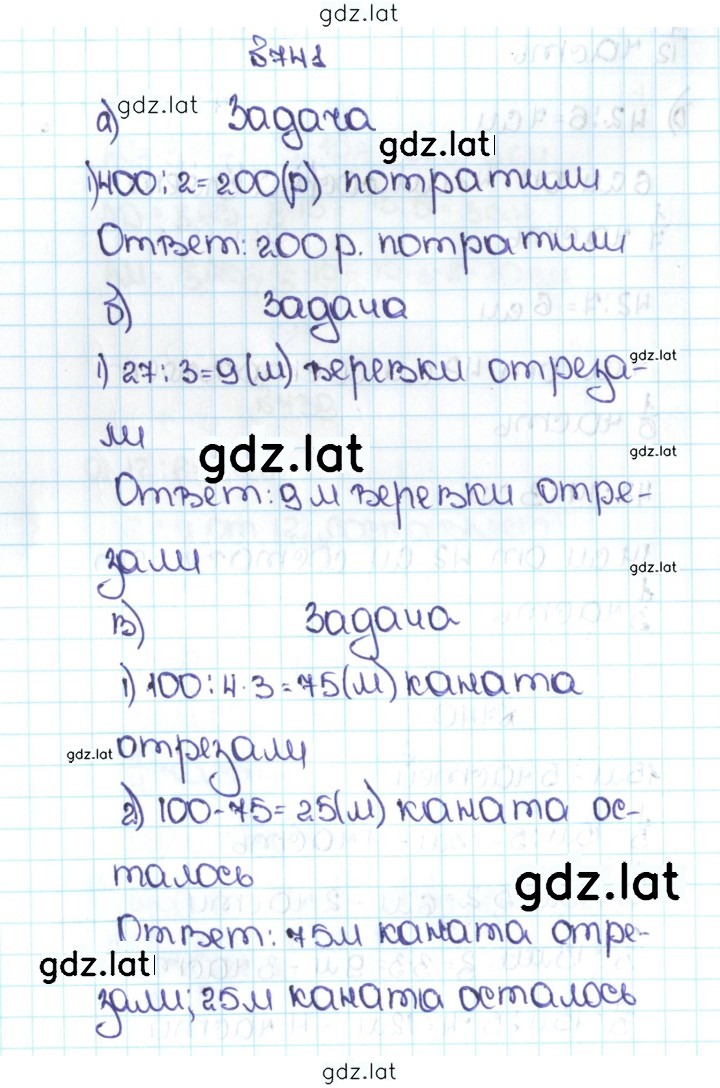 gdz.lat
8741
а) gdz.lat Задача
gdz.lat
1) 400:2=200(р) потратили
Ответ: 200р. потратили
б) Задача
gdz.lat
1) 27:3=9(м) веревки отреза-
ли
gdz.lat
gdz.lat
Ответ: 9м веревки отре-
зали
gdz.lat
в) Задача
1) 100:4·3=75(м) каната
gdz.lat отрезали
2) 100-75=25(м) каната ос-
талось
gdz.lat
Ответ: 75м каната отре-
gdz.lat
зали; 25м каната осталось
gdz.lat